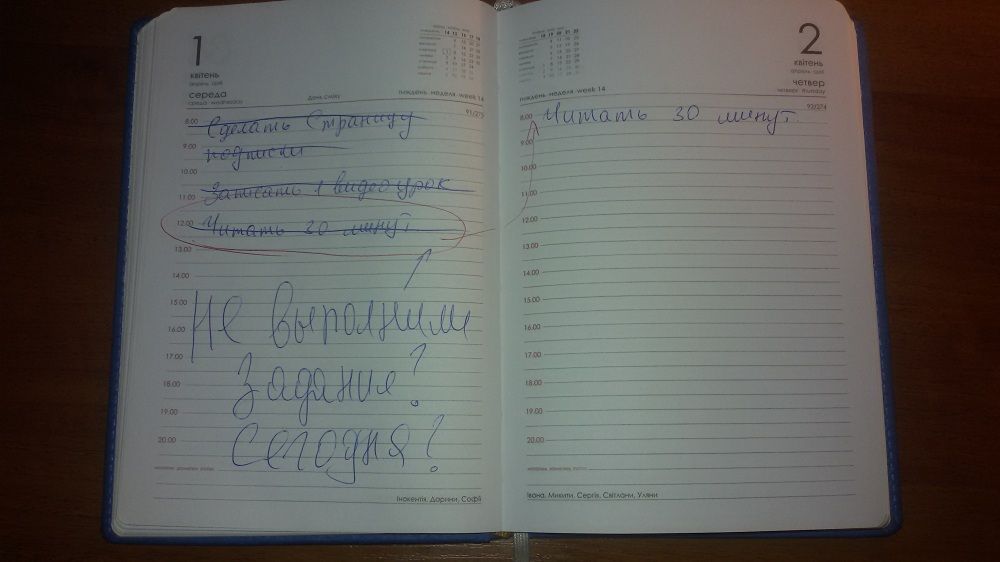 1
квітень
апрель april
середа
среда wednesday
День сміху
тиждень неделя week 14
91/275
8.00
Сделать Страницу
9.00
подписки
10.00
Записать 1 видео урок
11.00
12.00
Читать 30 минут
13.00
14.00
15.00
Не выполнили
16.00
17.00
Задания?
18.00
19.00
Сегодня?
20.00
Інокентія, Дарини, Софії
2
квітень
апрель april
четвер
четверг thursday
тиждень неделя week 14
92/274
8.00
Читать 30 минут
9.00
10.00
11.00
12.00
13.00
14.00
15.00
16.00
17.00
18.00
19.00
20.00
Івана, Микити, Сергія, Світлани, Уляни